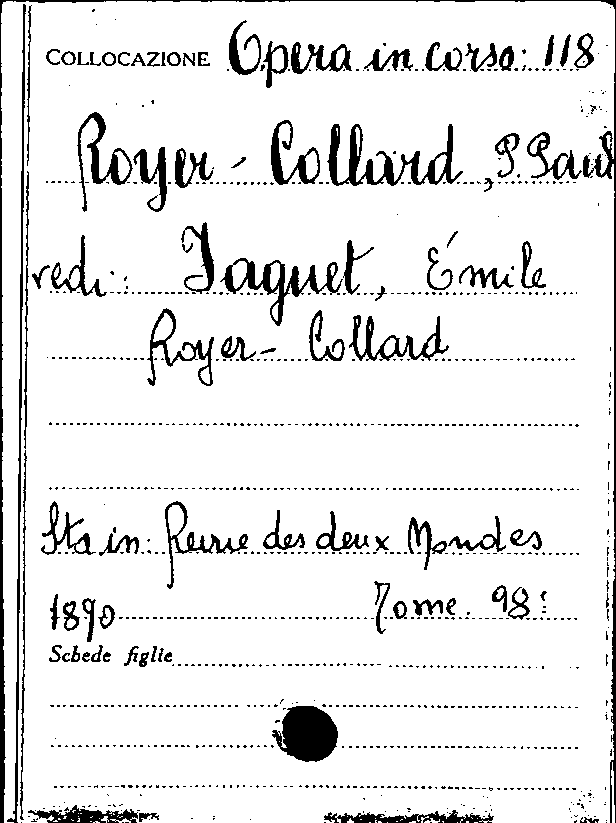 COLLOCAZIONE Opera in corso: 118
Royer - Collard, P. Paul
vedi: Faguet, Émile
Royer - Collard
Sta in: Revue des deux Mondes
1890 Tome. 98:
Schede figlie